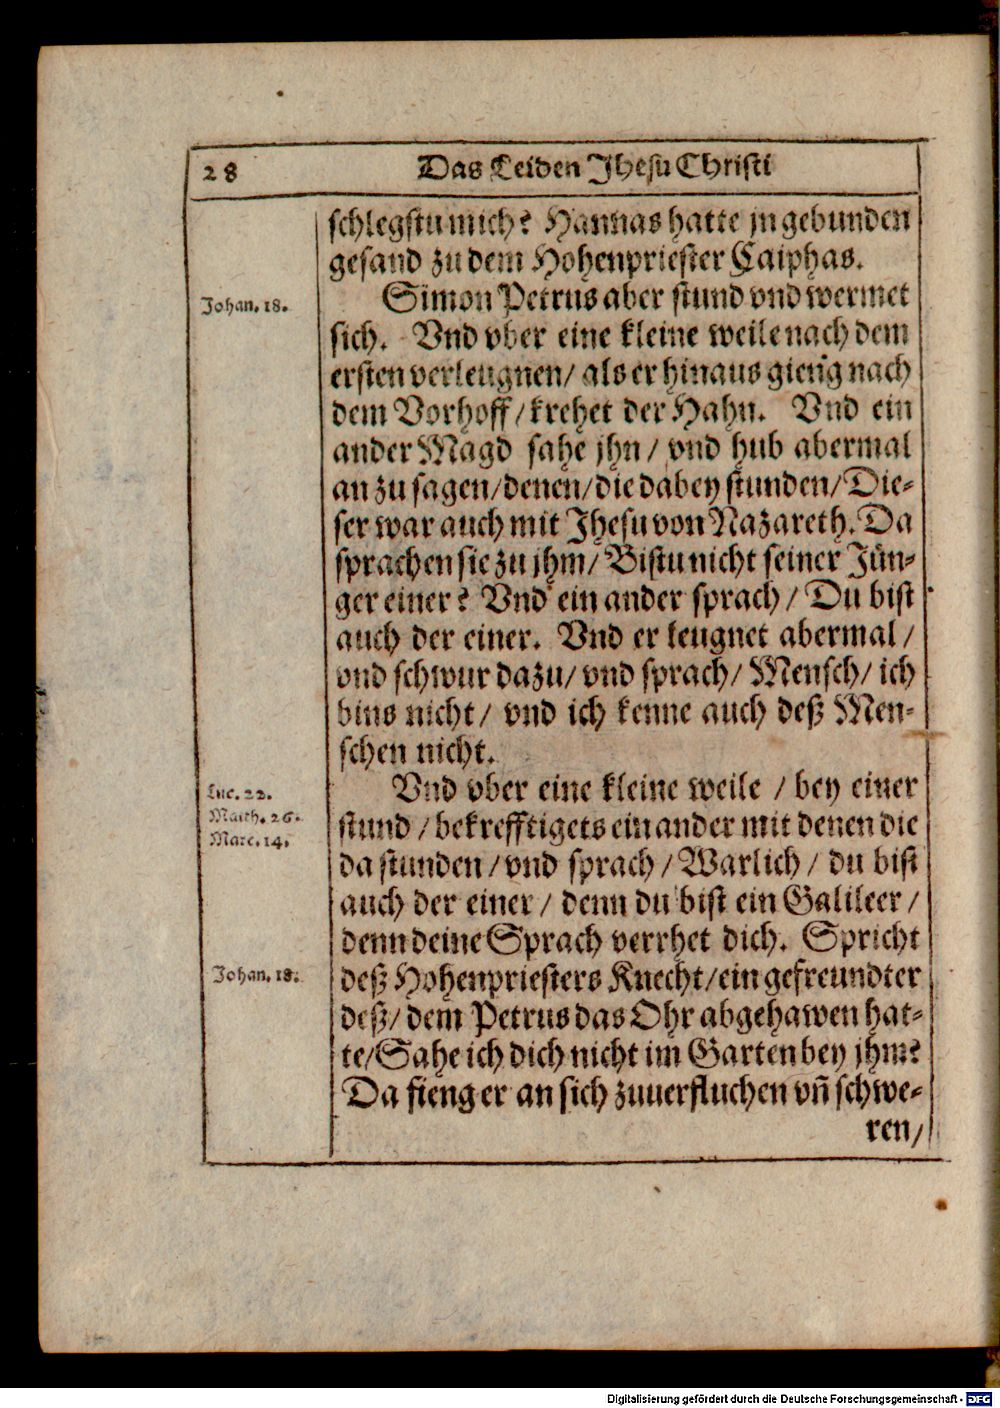 28 Das Leiden Jhesu Christi
schlegstu mich? Hannas hatte jn gebunden
gesand zu dem Hohenpriester Caiphas.
Johan. 18.
Simon Petrus aber stund vnd wermet
sich. Vnd vber eine kleine weile nach dem
ersten verleugnen/ als er hinaus gieng nach
dem Vorhoff/ krehet der Hahn. Vnd ein
ander Magd sahe jhn/ vnd hub abermal
an zu sagen/ denen/ die dabey stunden/ Die-
ser war auch mit Jhesu von Nazareth. Da
sprachen sie zu jhm/ Bistu nicht seiner Jün-
ger einer? Vnd ein ander sprach/ Du bist
auch der einer. Vnd er leugnet abermal/
vnd schwur dazu/ vnd sprach/ Mensch/ ich
bins nicht/ vnd ich kenne auch deß Men-
schen nicht.
Luc. 22.
Matth. 26.
Marc. 14.
Vnd vber eine kleine weile/ bey einer
stund/ bekrefftigets ein ander mit denen die
da stunden/ vnd sprach/ Warlich/ du bist
auch der einer/ denn du bist ein Galileer/
denn deine Sprach verrhet dich. Spricht
Johan. 18.
deß Hohenpriesters Knecht/ ein gefreundter
deß/ dem Petrus das Ohr abgehawen hat-
te/ Sahe ich dich nicht im Garten bey jhm?
Da fieng er an sich zuuerfluchen vn̄ schwe-
ren/
Digitalisierung gefördert durch die Deutsche Forschungsgemeinschaft - DFG